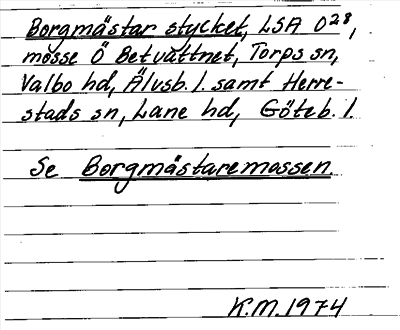 Borgmästar stycket, LSA O²⁸,
mosse Ö Betvattnet, Torps sn,
Valbo hd, Älvsb. l. samt Herre-
stads sn, Lane hd, Göteb. l.
Se Borgmästaremossen.
K.M. 1974